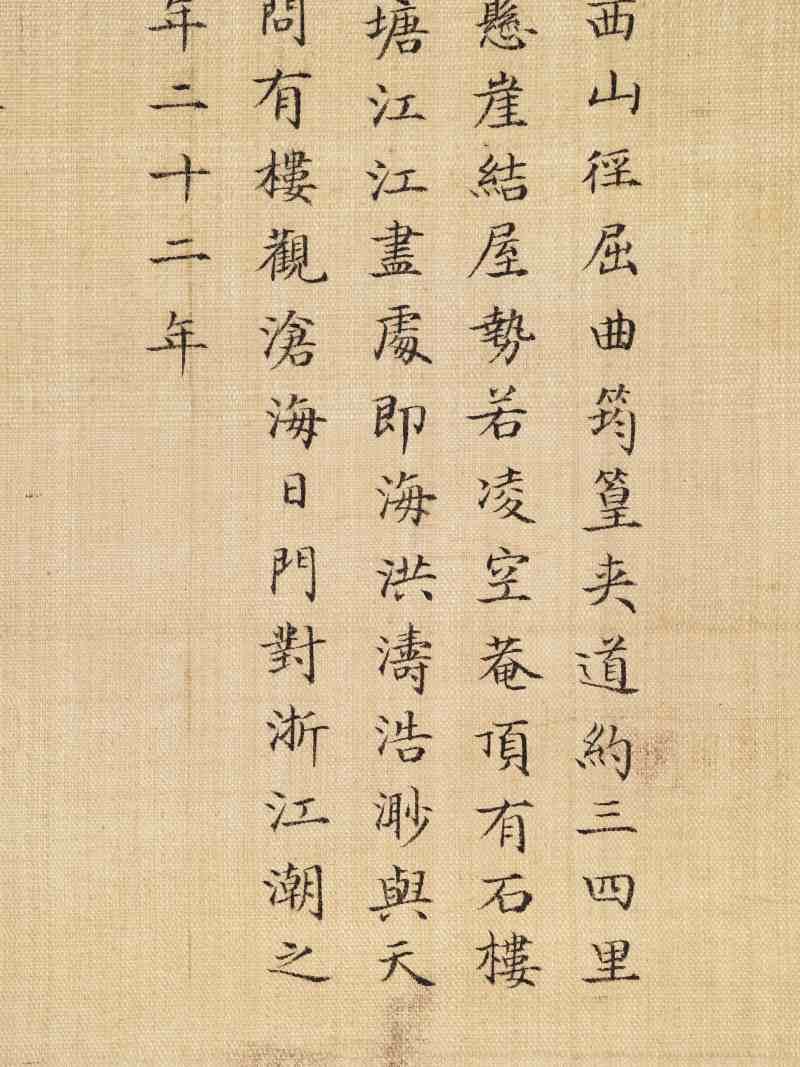 西山徑屈曲筠篁夾道約三四里
懸崖結屋勢若凌空菴頂有石樓
塘江江盡處即海洪濤浩渺與天
問有樓觀滄海日門對浙江潮之
年二十二年